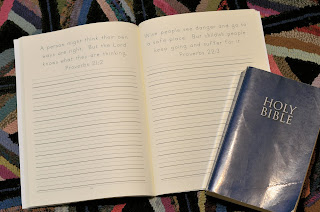 A person might think their own
ways are right. But the Lord
knows what they are thinking.
Proverbs 21:2
Wise people see danger and go to
a safe place. But childish people
keep going and suffer for it.
Proverbs 22:3
HOLY
BIBLE